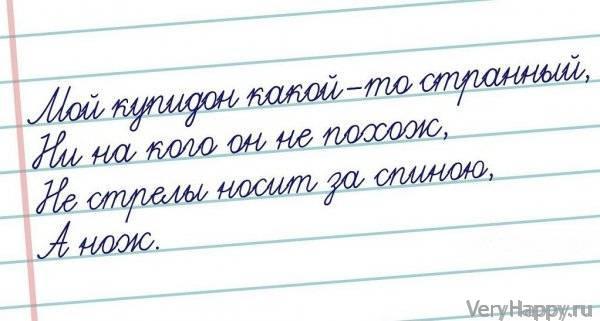 Мой купидон какой-то странный,
Ни на кого он не похож,
Не стрелы носит за спиною,
А нож.
VeryHappy.ru